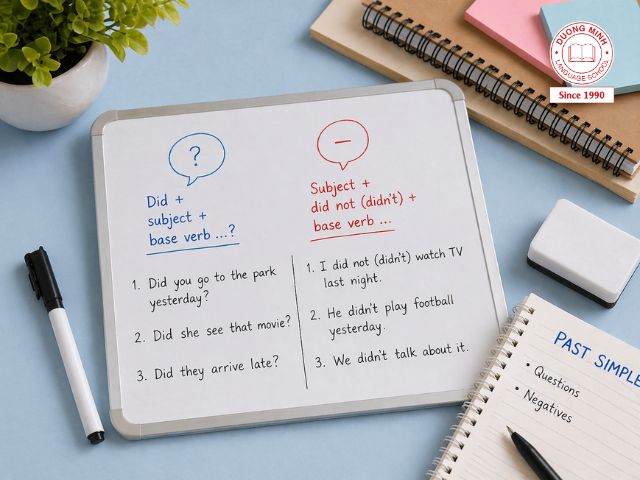 ?
Did +
subject +
base verb ...?
1. Did you go to the park
yesterday?
2. Did she see that movie?
3. Did they arrive late?
–
Subject +
did not (didn't) +
base verb ...
1. I did not (didn't) watch TV
last night.
2. He didn't play football
yesterday.
3. We didn't talk about it.
DUONG MINH
LANGUAGE SCHOOL
Since 1990
PAST SIMPLE
• Questions
• Negatives